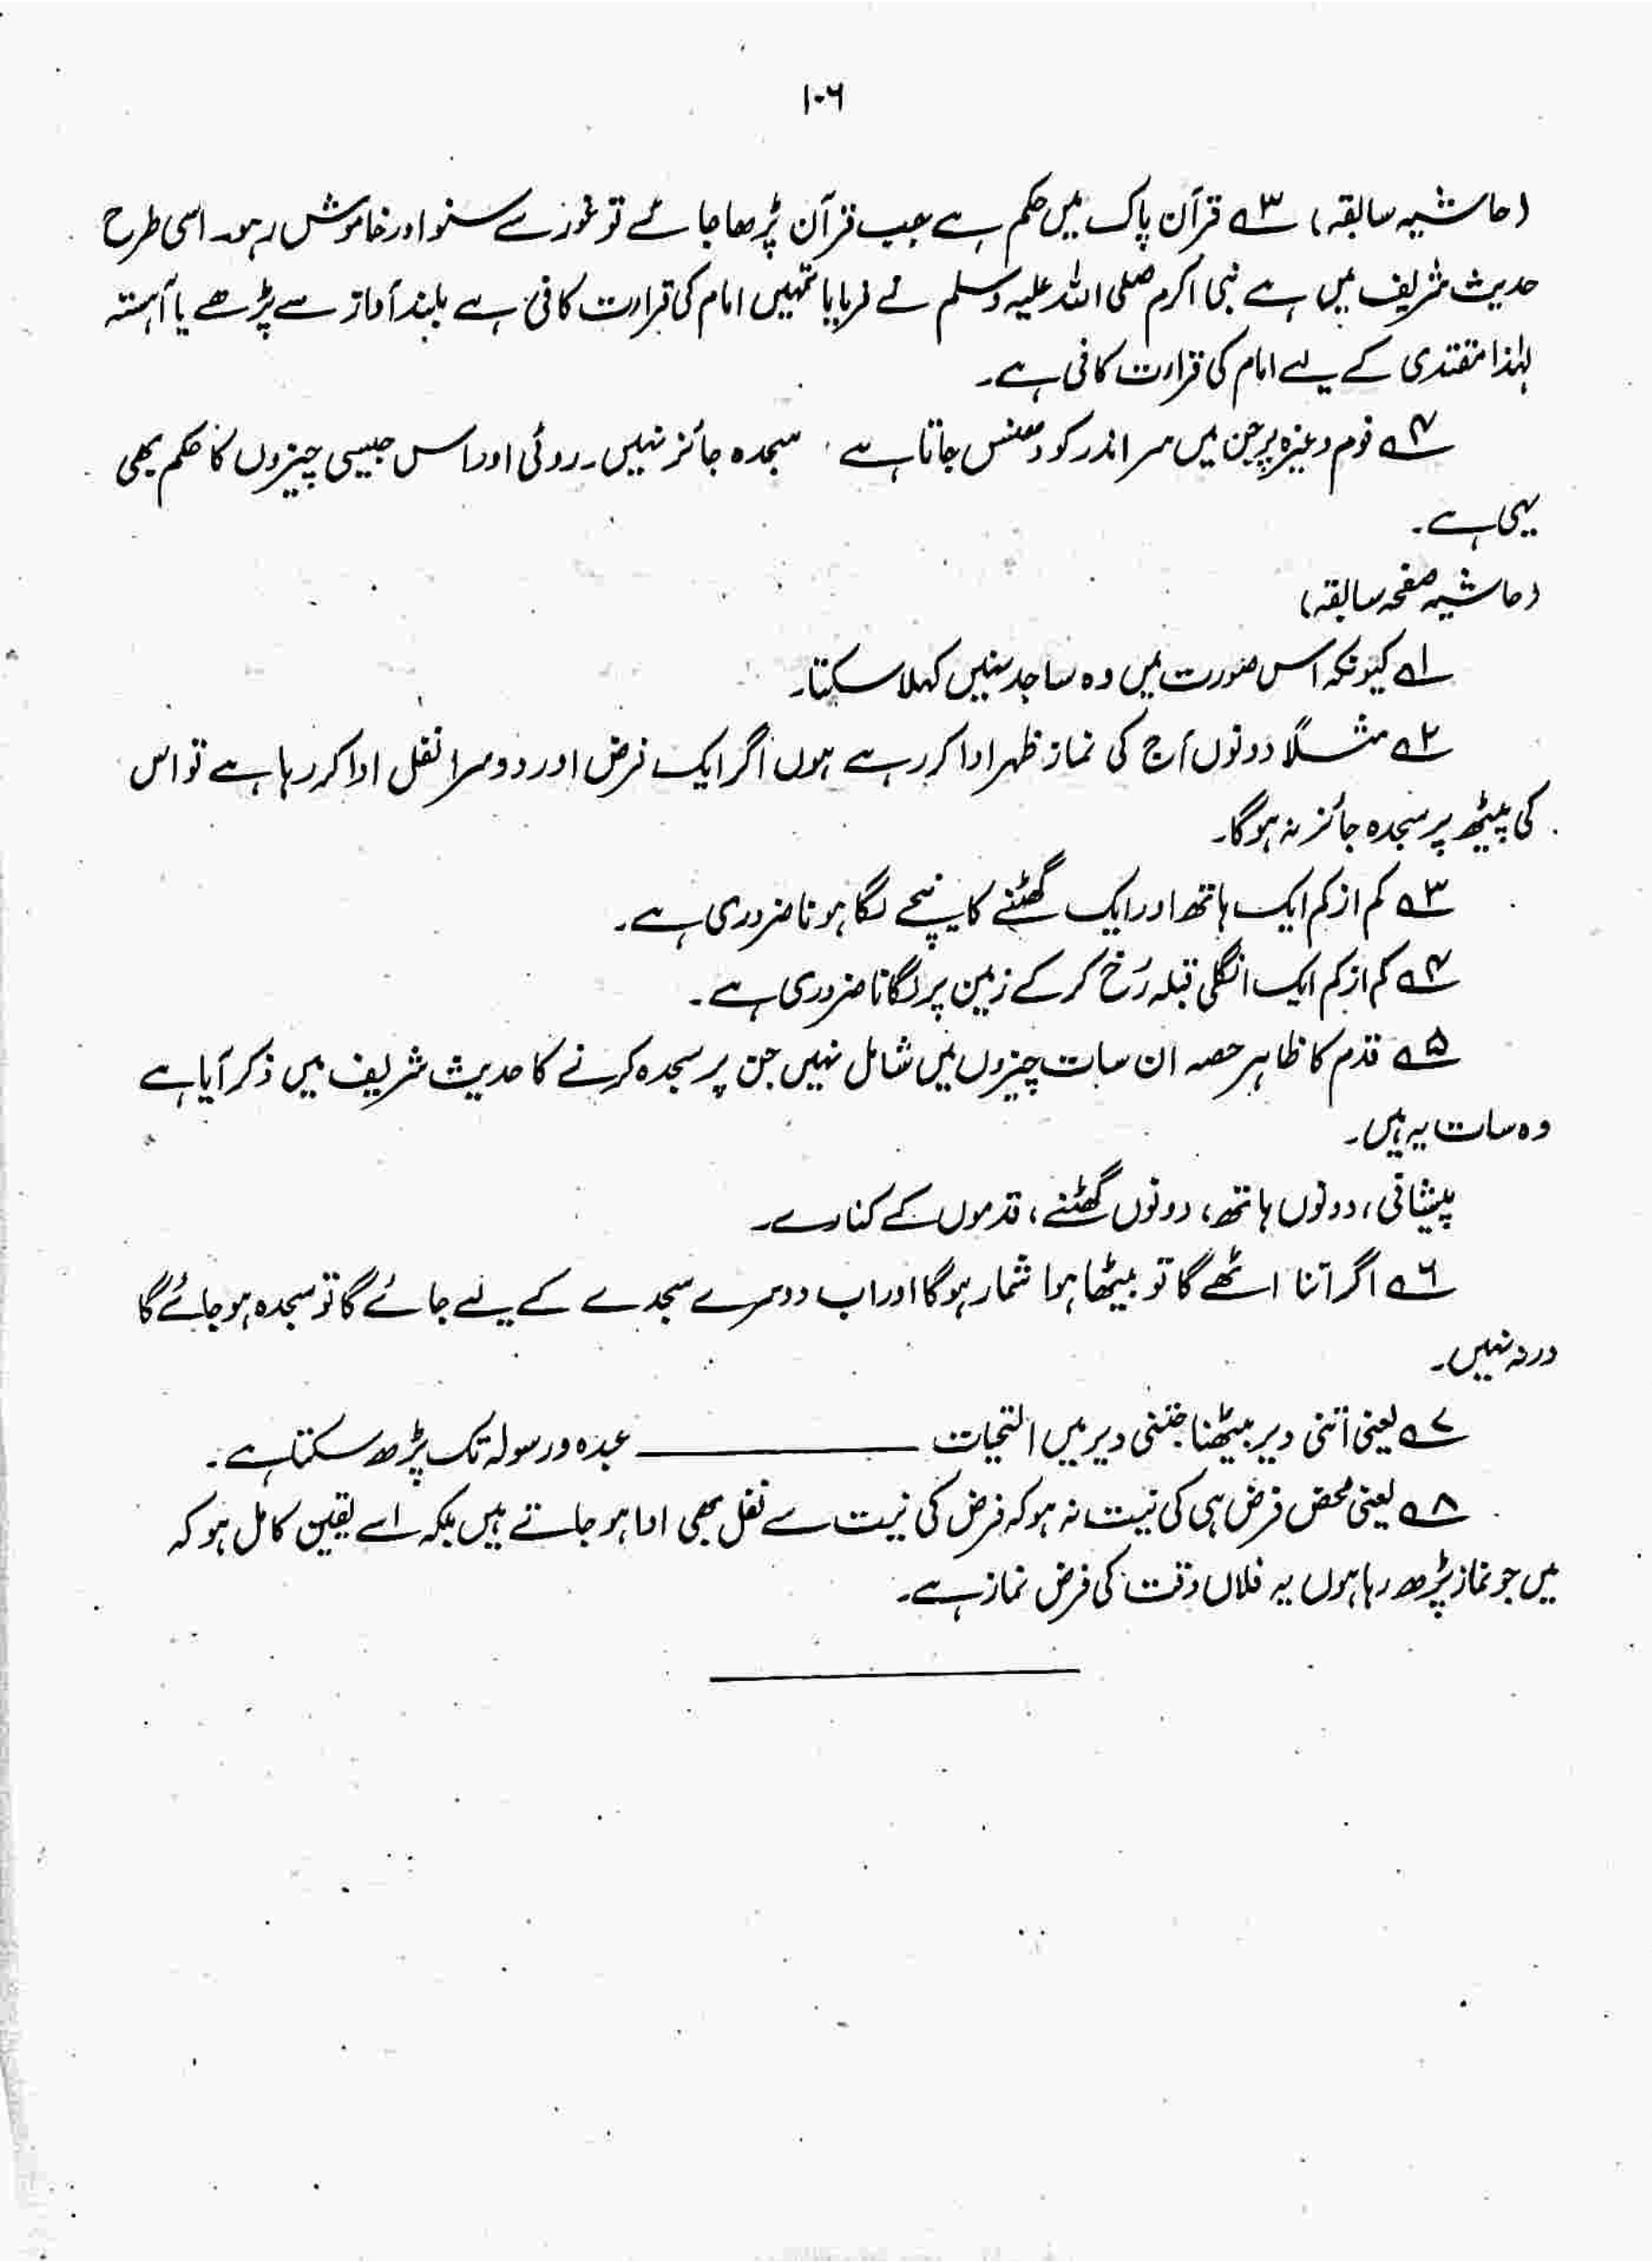 ۱۰۶
(حاشیہ سابقہ) ۳؎ قرآن پاک میں حکم ہے جب قرآن پڑھا جائے تو غور سے سنو اور خاموش رہو۔ اسی طرح
حدیث شریف میں ہے نبی اکرم صلی اللہ علیہ وسلم نے فرمایا تمہیں امام کی قرارت کافی ہے بلند آواز سے پڑھے یا آہستہ
لہٰذا مقتدی کے لیے امام کی قرارت کافی ہے۔
۴؎ فوم وغیرہ پر جن میں سر اندر کو دھنس جاتا ہے، سجدہ جائز نہیں۔ روئی اور اس جیسی چیزوں کا حکم بھی
یہی ہے۔
(حاشیہ صفحہ سابقہ)
۱؎ کیونکہ اس صورت میں وہ ساجد نہیں کہلا سکتا۔
۲؎ مثلاً دونوں آج کی نماز ظہر ادا کر رہے ہوں اگر ایک فرض اور دوسرا نفل ادا کر رہا ہے تو اس
کی پیٹھ پر سجدہ جائز نہ ہوگا۔
۳؎ کم از کم ایک ہاتھ اور ایک گھٹنے کا نیچے لگا ہونا ضروری ہے۔
۴؎ کم از کم ایک انگلی قبلہ رُخ کر کے زمین پر لگانا ضروری ہے۔
۵؎ قدم کا ظاہر حصہ ان سات چیزوں میں شامل نہیں جن پر سجدہ کرنے کا حدیث شریف میں ذکر آیا ہے
وہ سات یہ ہیں۔
پیشانی، دونوں ہاتھ، دونوں گھٹنے، قدموں کے کنارے۔
۶؎ اگر اتنا اٹھے گا تو بیٹھا ہوا شمار ہوگا اور اب دوسرے سجدے کے لیے جائے گا تو سجدہ ہو جائے گا
ورنہ نہیں۔
۷؎ یعنی اتنی دیر بیٹھنا جتنی دیر میں التحیات ــــــــــــ عبدہ ورسولہ تک پڑھ سکتا ہے۔
۸؎ یعنی محض فرض ہی کی نیت نہ ہو کہ فرض کی نیت سے نفل بھی ادا ہو جاتے ہیں بلکہ اسے یقین کامل ہو کہ
میں جو نماز پڑھ رہا ہوں یہ فلاں وقت کی فرض نماز ہے۔